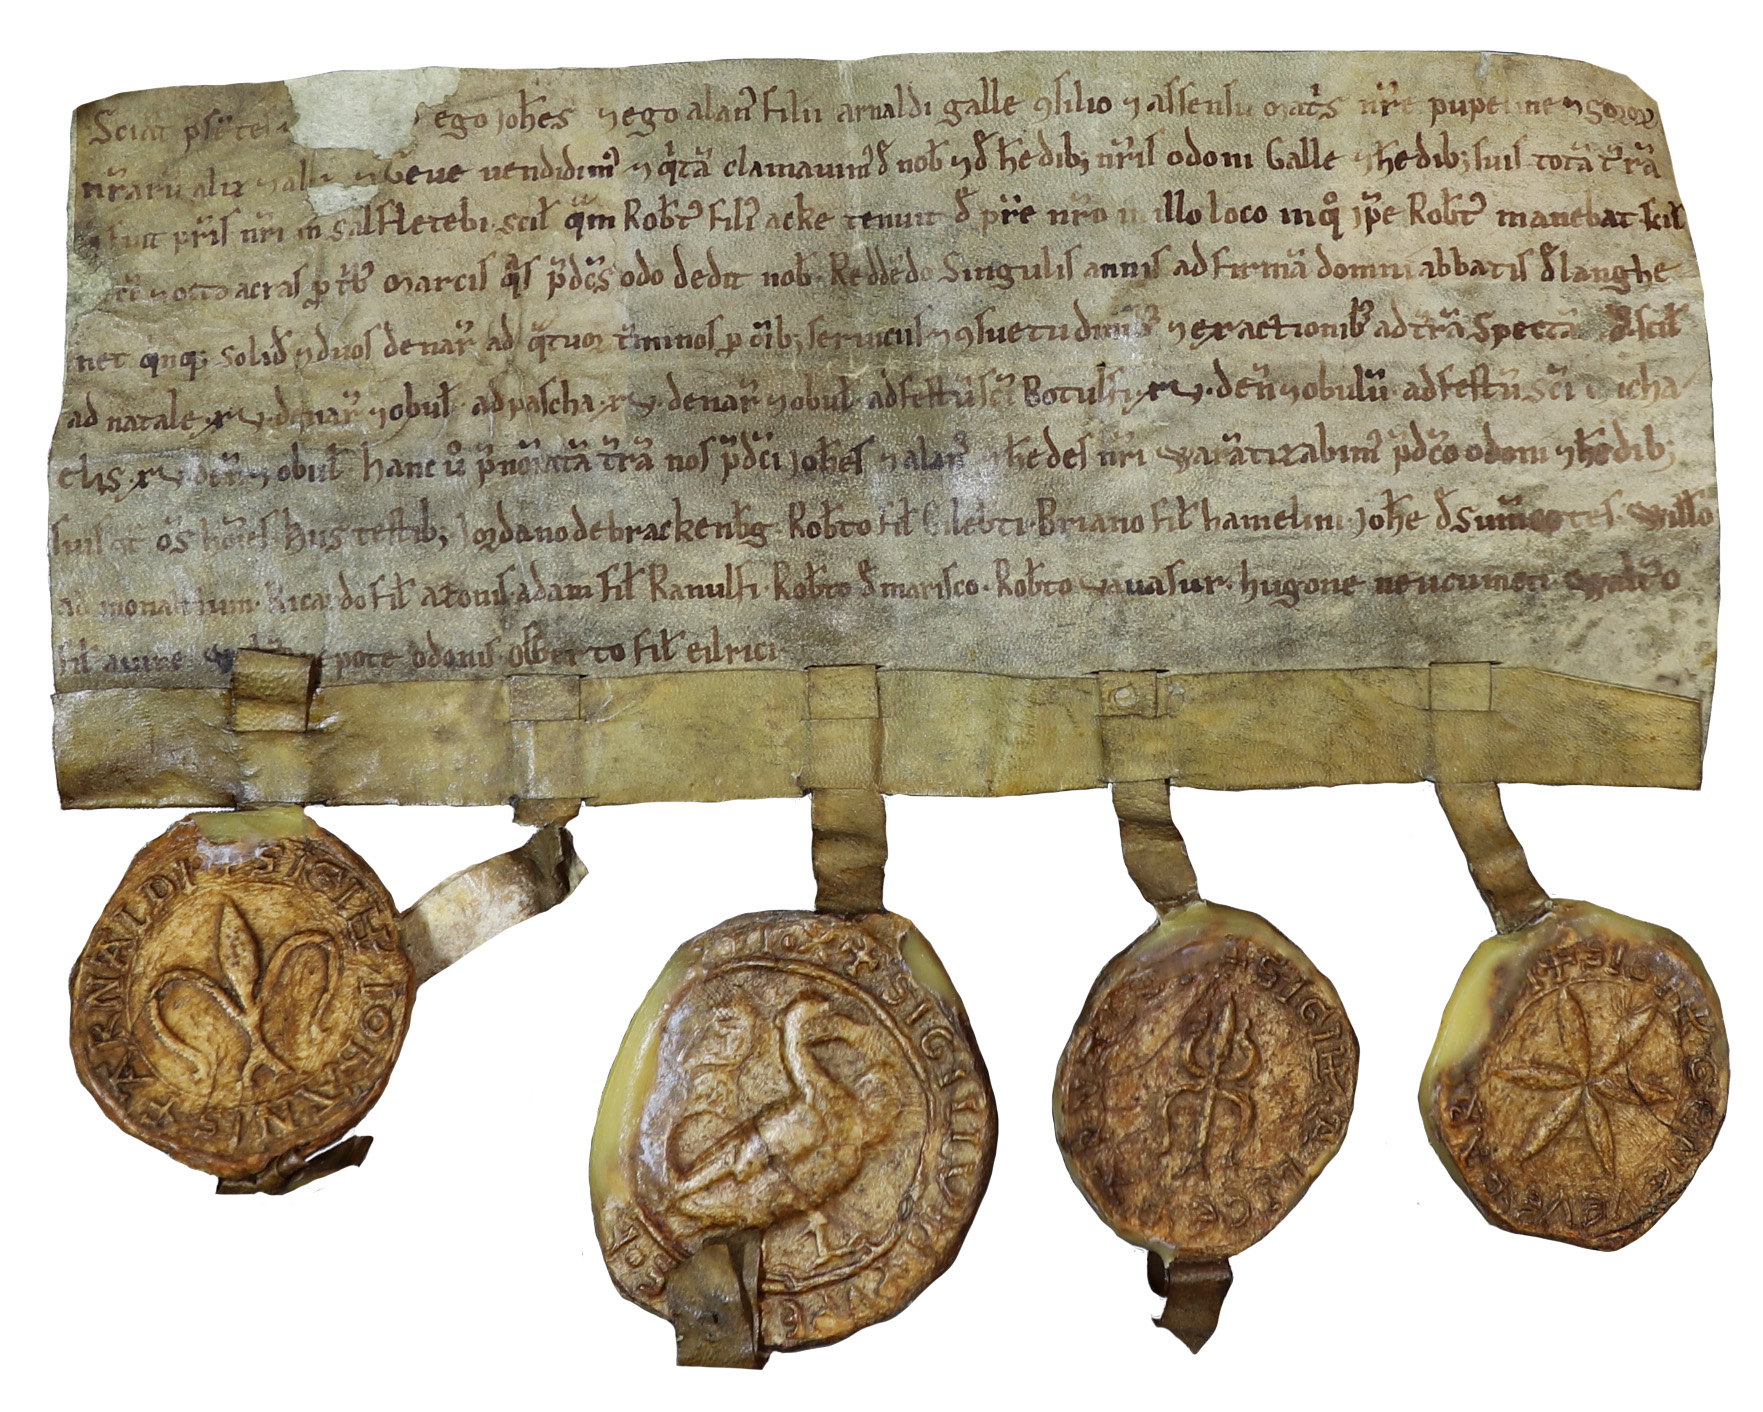 Sciāt p̄sētes ego joħes ⁊ ego alanꝰ filii arnaldi galle ꝯsilio ⁊ assensu mat̄s nr̄e pupeline ⁊ soroꝝ
nr̄arū aliz ⁊ ⁊ Geve vendidimꝰ ⁊ q̄tā clamavimꝰ đ noƀ ⁊ đ ħedibꝫ nr̄is odoni Galle ⁊ ħedibꝫ suis totā t̄rā
q̄ fuit pr̄is nr̄i in salfletebi scił q̄m Roƀtꝰ filiꝰ acke tenuit đ pr̄e nr̄o in illo loco in qͦ ip̄e Roƀtꝰ manebat scił
⁊ octo acras ꝓ marcis q̄s p̄dc̄s odo dedit noƀ. Reddēdo Singulis annis ad firmā domni abbatis đ langhe
net qinqꝫ soliđ ⁊ duos denar̄ ad q̄tuor t̄minos ꝓ oīƀꝫ serviciis ⁊ ꝯsuetudiniƀꝰ ⁊ exactioniƀꝰ ad t̄rā Spectā scił
ad natale .xv. denar̄ ⁊ obuł. ad pascha .xv. denar̄ ⁊ obuł. ad festū sc̄i Botulfi .xv. den̄ ⁊ obulū. ad festū sc̄i micha
elis .xv. den̄ ⁊ obuł. hanc v̊ p̄noīatā t̄rā nos p̄dc̄i joħes ⁊ alanꝰ ⁊ ħedes nr̄i warātizabimꝰ p̄dc̄o odoni ⁊ ħedibꝫ
suis ōs hoīes. His testibꝫ Jordano de brackenƀg. Roƀto fił Gilebti. Briano fił hamelini. joħe đ Sum̄cotes. Willo
ad monaliūm. Ricardo fił atonis. adam fił Ranulfi. Roƀto đ marisco. Roƀto vavasur. hugone neucumen. Walt̄o
fił pote odonis. Osbꝑto fił eilrici
SIGILL IOHANIS F ARNALDI
SIGILLUM
SIGILL ALICE
SIGILL GENEVEVE